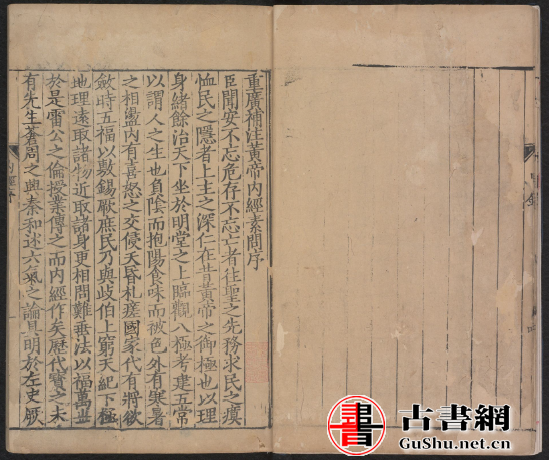 重廣補注黃帝內經素問序
臣聞安不忘危存不忘亡者往聖之先務求民之瘼
恤民之隱者上主之深仁在昔黃帝之御極也以理
身緒餘治天下坐於明堂之上臨觀八極考建五常
以謂人之生也負陰而抱陽食味而被色外有寒暑
之相盪內有喜怒之交侵夭昏札瘥國家代有將欲
斂時五福以敷錫厥庶民乃與岐伯上窮天紀下極
地理遠取諸物近取諸身更相問難垂法以福萬世
於是雷公之倫授業傳之而內經作矣歷代寶之未
有失墜蒼周之興秦和述六氣之論具明於左史厥
書
古書網
GuShu.net.cn